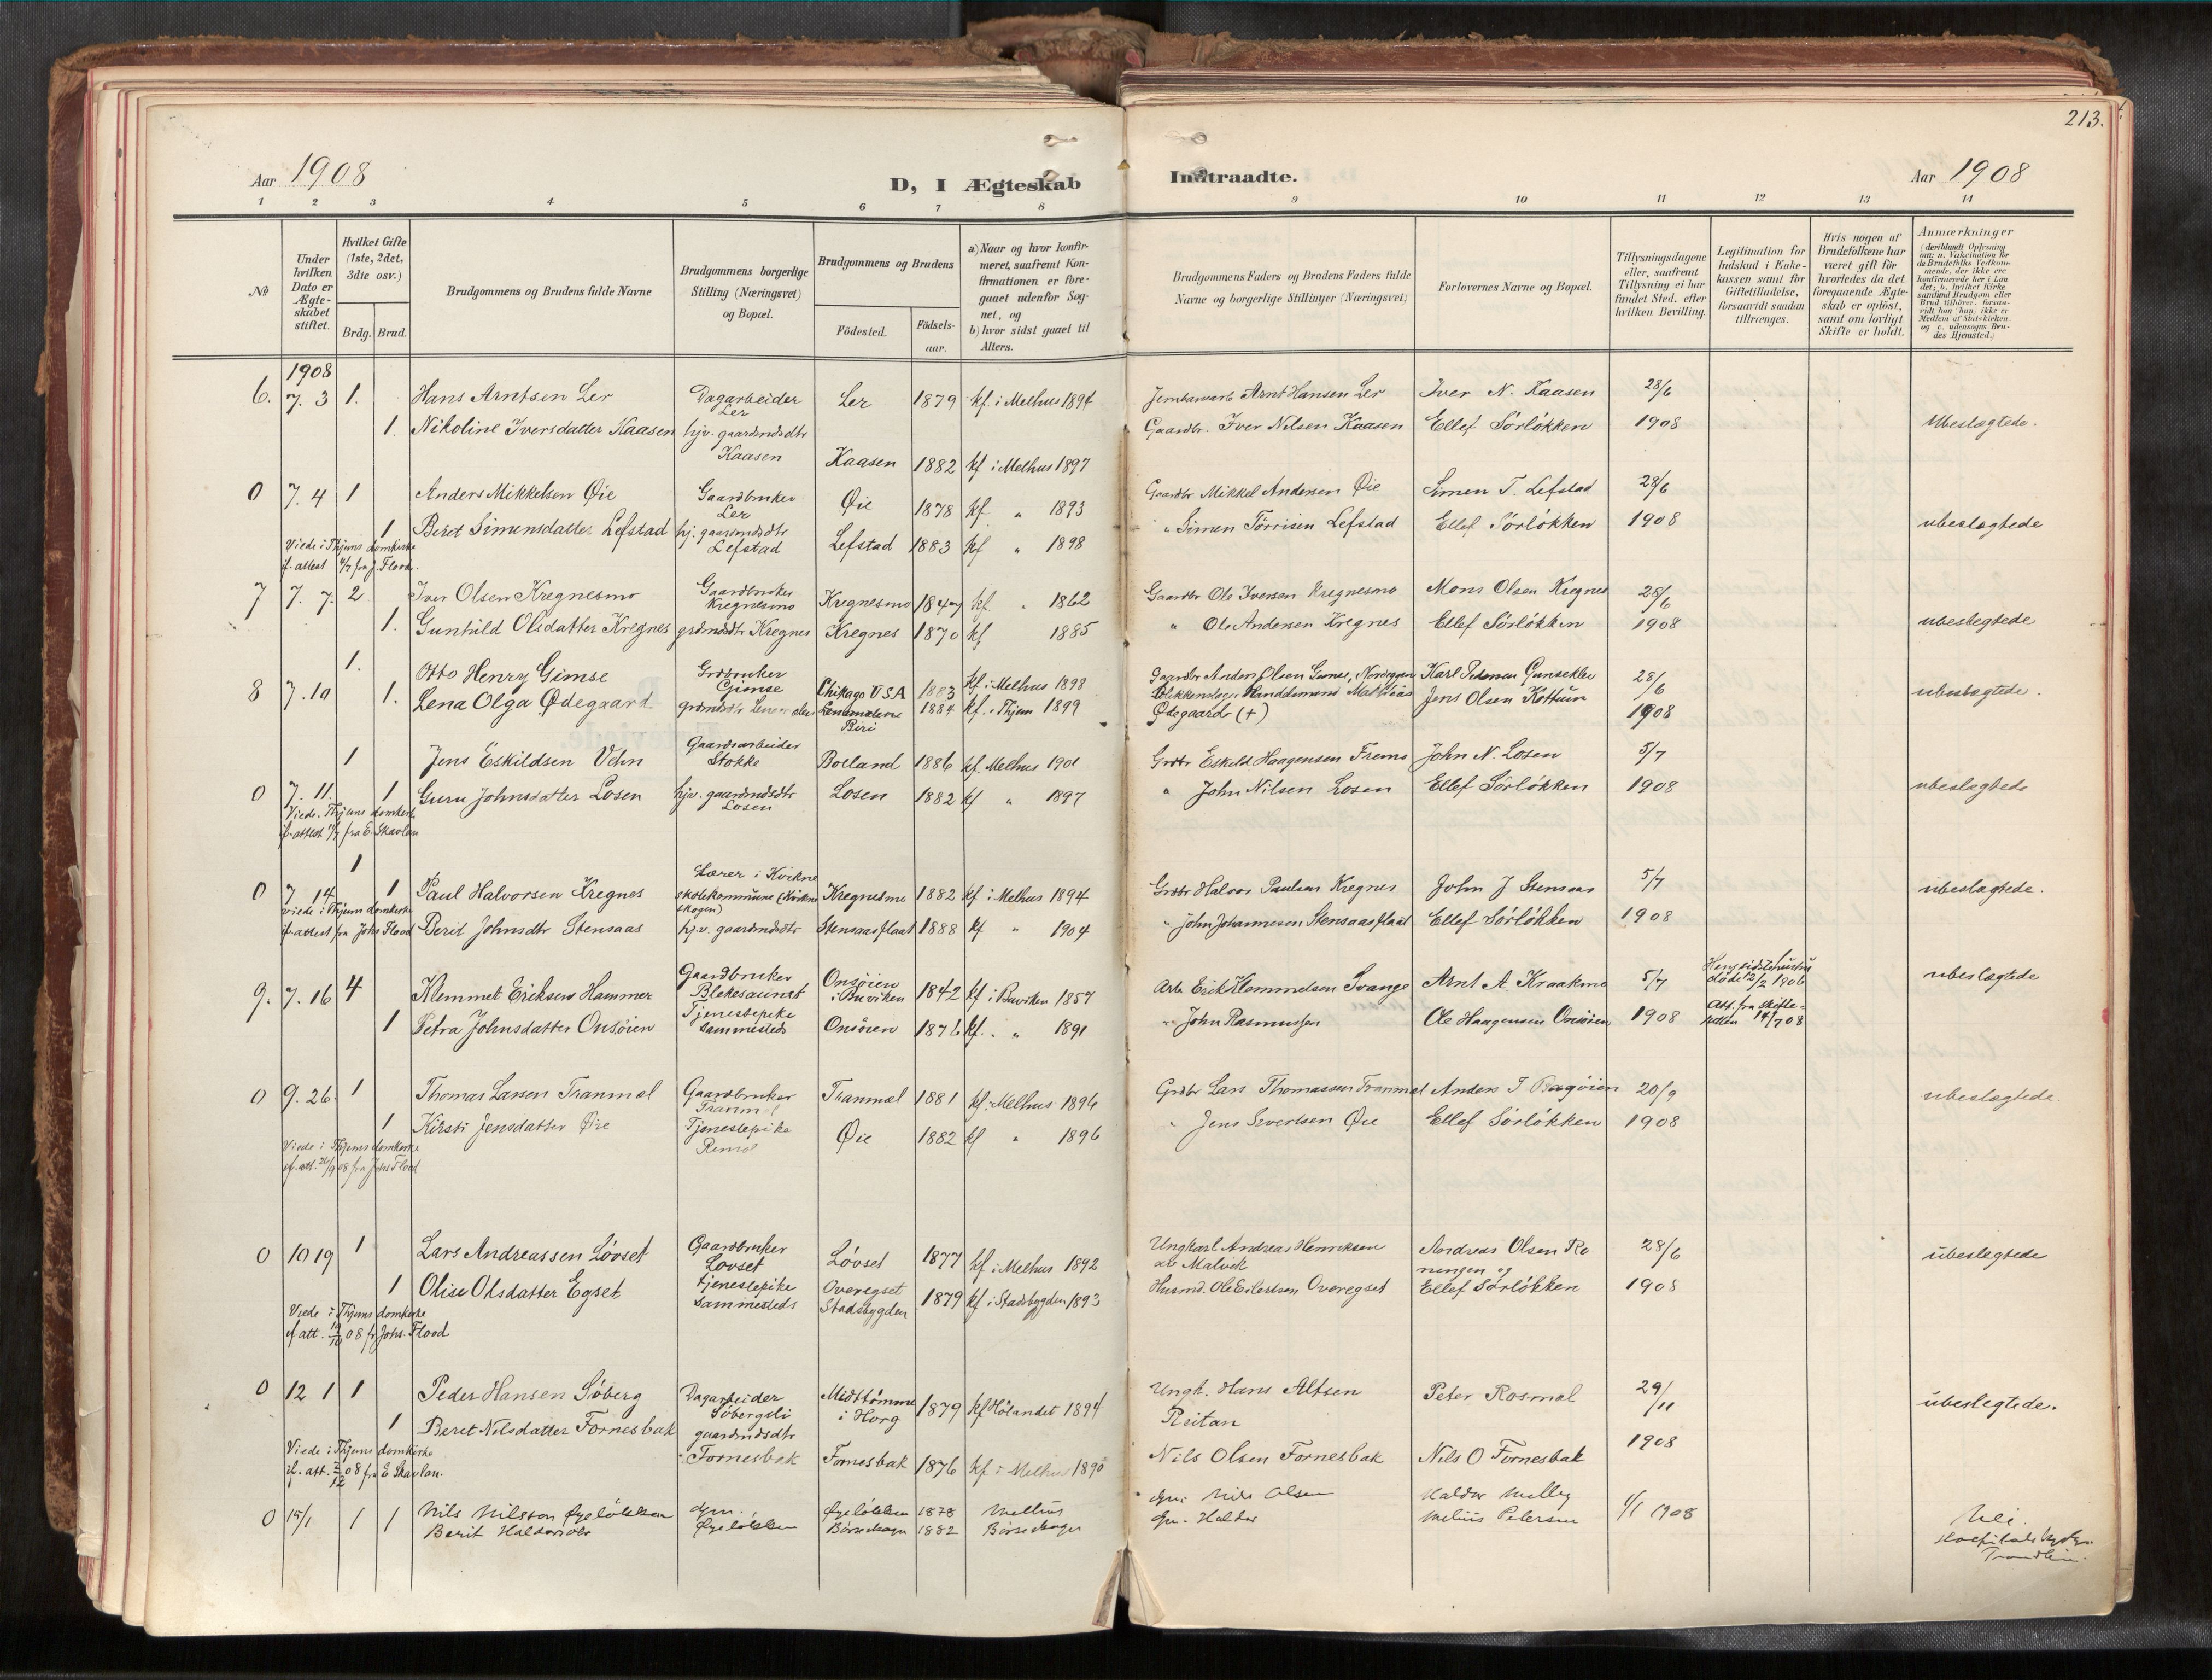 213.
Aar 1908
D, I Ægteskab
Indtraadte.
Aar 1908
1 2 3 4 5 6 7 8 9 10 11 12 13 14
No
Under hvilken Dato er Ægteskabet stiftet.
Hvilket Gifte (1ste, 2det, 3die osv.)
Brdg. Brud.
Brudgommens og Brudens fulde Navne
Brudgommens borgerlige Stilling (Næringsvei) og Bopæl.
Brudgommens og Brudens
Födested.
Födselsaar.
a) Naar og hvor konfirmeret, saafremt Konfirmationen er foregaaet udenfor Sognet, og
b) hvor sidst gaaet til Alters.
Brudgommens Faders og Brudens Faders fulde Navne og borgerlige Stillinger (Næringsvei)
Forlovernes Navne og Bopæl.
Tillysningsdagene eller, saafremt Tillysning ei har fundet Sted, efter hvilken Bevilling.
Legitimation for Indskud i Enkekassen samt for Giftetilladelse, forsaavidt saadan tiltrænges.
Hvis nogen af Brudefolkene har været gift før hvorledes da det foregaaende Ægteskab er oplöst, samt om lovligt Skifte er holdt.
Anmærkninger
(deriblandt Oplysning om: a. Vakcination for de Brudefolks Vedkommende, der ikke ere konfirmerede her i Landet; b. hvilket Kirkesamfund Brudgom eller Brud tilhörer, forsaavidt han (hun) ikke er Medlem af Statskirken. og c. udensogns Brudes Hjemsted.)
1908
6. 7. 3 1. Hans Arntsen Ler Dagarbeider Ler Ler 1879 kf. i Melhus 1894 Arnt Hansen Ler Iver N. Kaasen 28/6
1. Nikoline Iversdatter Kaasen hjv. gaardmdsdtr Kaasen Kaasen 1882 kf i Melhus 1897 Gaardbr. Iver Nilsen Kaasen Ellef Sörlökken 1908 Ubeslægtede.
0 7. 4 1 Anders Mikkelsen Øie Gaardbruker Ler Øie 1878 kf " 1893 Gaardbr Mikkel Andersen Øie Simen T. Lefstad 28/6
1 Beret Simensdatter Lefstad hj. gaardmdsdtr Lefstad Lefstad 1883 kf " 1898 " Simen Törrisen Lefstad Ellef Sörlökken 1908 ubeslægtede
Viede i Thjems domkirke
if. attest 4/7 fra J. Flood.
7 7. 7. 2 Iver Olsen Kregnesmo Gaardbruker Kregnesmo Kregnesmo 1847 kf. " 1862 Gaardbr Ole Iversen Kregnesmo Mons Olsen Kregnes 28/6
1. Gunhild Olsdatter Kregnes grdmdsdtr Kregnes Kregnes 1870 kf 1885 " Ole Andersen Kregnes Ellef Sörlökken 1908 ubeslegtede
8 7. 10 1. Otto Henry Gimse Grdbruker Gimse Chikago USA 1883 kf. i Melhus 1898 Gaardbr Anders Olsen Karl Petersen 28/6
1. Lena Olga Ødegaard 1884 kf. i Thjem 1899 Ødegaard (+) Jens Olsen Kottum 1908 ubeslægtede.
Biri
1 Jens Eskildsen Vehn Gaardsarbeider Stokke Boeland 1886 kf. Melhus 1901 Grdbr Eskild Haagensen Frems John N. Losen 5/7
0 7. 11. 1 Guru Johnsdatter Losen hjv. gaardmdsdtr Losen Losen 1882 kf " 1897 " John Nilsen Losen Ellef Sörlökken 1908 ubeslægtede
Viede i Thjems domkirke
if. attest 11/7 fra E. Skavlan
0 7 14 1 1 Paul Halvorsen Kregnes Lærer i Kvikne skolekommune (Kvikneskogen) Kregnesmo 1882 kf i Melhus 1894 Grdbr Halvor Paulsen Kregnes John J Stensaas 5/7 ubeslægtede.
Berit Johnsdtr Stensaas hj.v. gaardmdsdtr Stensaasflaat 1888 kf " 1904 " John Johannesen Stensaasflaat Ellef Sörlökken 1908
viede i Thjems domkirke
if attest fra Johs Flood
9. 7. 16 4 Klemmet Eriksen Hammer Gaardbruker Blekesaunet Onsöien i Buviken 1842 kf i Buviken 1857 Arb. Erik Klemmetsen Svange Arnt A. Kraakmo 5/7 Hans sidste hustru döde 12/2 1906 ubeslægtede
1 Petra Johnsdatter Onsöien Tjenestepike sammesteds Onsöien 1876 kf. " 1891 " John Rasmussen Ole Haagensen Onsöien 1908 Att. fra skifteretten 14/7 08
0 9. 26. 1 Thomas Larsen Tranmæl Gaardbruker Tranmæl Tranmæl 1881 kf. i Melhus 1896 Grdbr Lars Thomassen Tranmæl Anders J 20/9 ubeslægtede.
1 Kirsti Jensdatter Øie Tjenestepike Øie 1882 kf " 1896 " Jens Sivertsen Øie Ellef Sörlökken 1908
Viede i Thjems domkirke
if. att. 26/9 08 fra Johs Flood
0 10 19 1 Lars Andreassen Lövset Gaardbruker Lovset Lövset 1877 kf i Melhus 1892 Ungkarl Andreas Henriksen Malvik Andreas Olsen Roningen og 28/6 ubeslegtede
1 Olise Olsdatter Egset tjenestepike sammesteds Overegset Stadsbygden 1879 kf i Stadsbygden 1893 Husmd. Ole Eilertsen Overegset Ellef Sörlökken 1908
Viede i Thjems domkirke
if att. 19/10 08 fr Johs. Flood
0 12 1 1 Peder Hansen Söberg Dagarbeider Söbergsli Midttömme i Horg 1879 kf Hölandet 1894 Ungk. Hans Altsen Reitan Peter Rosmæl 29/11 ubeslegtede.
1 Beret Nilsdatter Fornesbak gaardmdsdtr Fornesbak Fornesbak 1876 kf i Melhus 1890 Nils Olsen Fornesbak Nils O Fornesbak 1908
Viede i Thjems domkirke
if. att. 2/12 08 fra E Skavlan.
0 15/1 1 1 Nils Nilssen Øyelökken Gm. Øyelökken Øyelökken 1878 Melhus Gm. Nils Olsen Haldor 1/1 1908
Berit Haldorsdtr Börseskogn 1882 Börseskogn Gm. Haldor Melius Petersen